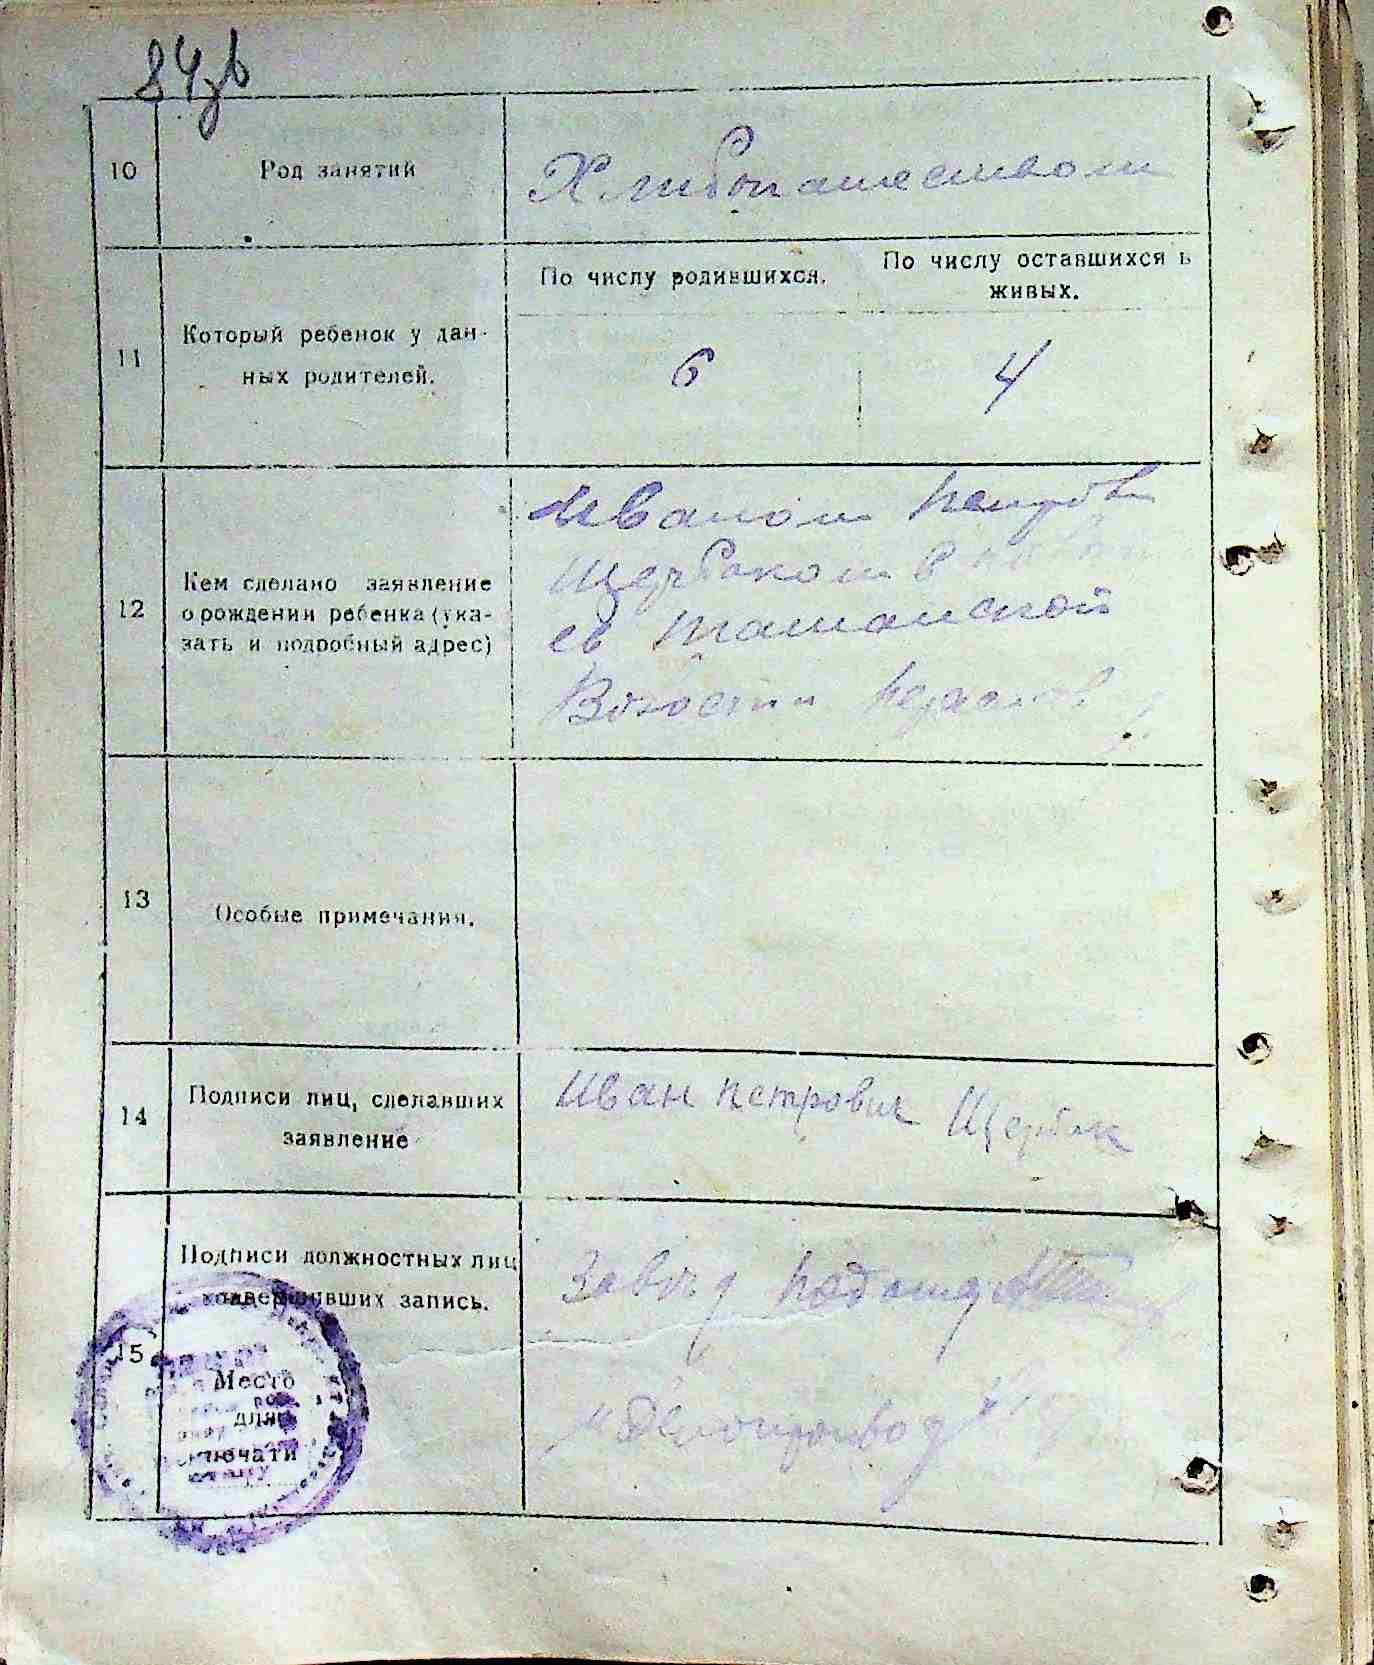 84зв
10
Род занятий
Хлибопашеством
11
Который ребенок у дан-
ных родителей.
По числу родившихся.
По числу оставшихся в
живых.
6
4
12
Кем сделано заявление
о рождении ребенка (ука-
зать и подробный адрес)
Иваном
Щербаком в
Волости
13
Особые примечания.
14
Подписи лиц, сделавших
заявление
Иван Петрович Щербак
15
Подписи должностных лиц
совершивших запись.
Место
для
печати
Завед
Делопроизвод